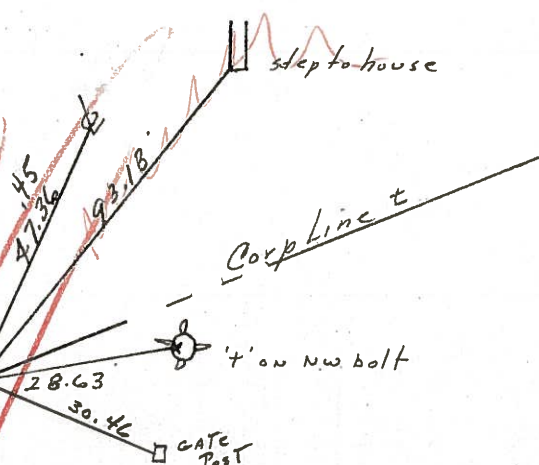 step to house
45
47.36
93.18'
Corp Line t
'+' on NW bolt
28.63
30.46
GATE
POST